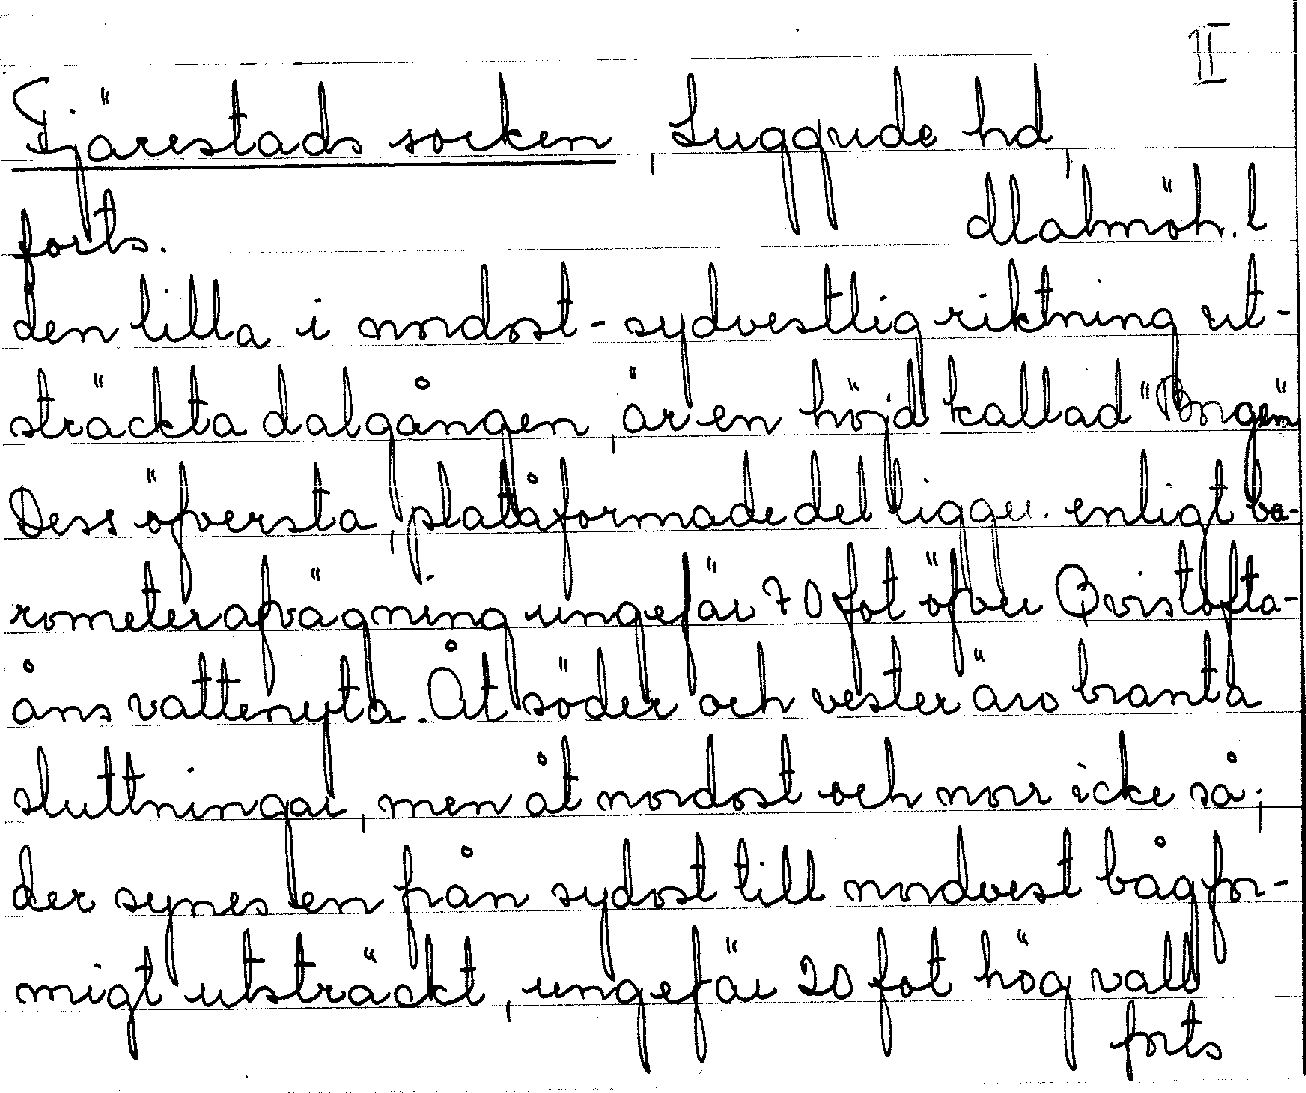 II
Fjärestads socken, Luggude hd,
forts. Malmöh. l
den lilla i nordost-sydvestlig riktning ut-
sträckta dalgången, är en höjd kallad "Borgen"
Dess öfversta, platåformade del ligger enligt ba-
rometerafvägning ungefär 70 fot öfver Qvistofta-
åns vattenyta. Åt söder och vester äro branta
sluttningar, men åt nordost och norr icke så;
der synes en från sydost till nordvest bågfor-
migt utsträckt, ungefär 20 fot hög vall
forts